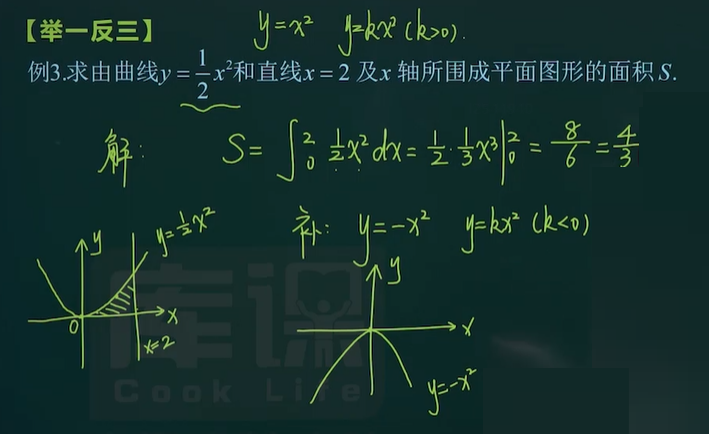 【举一反三】 y=x² y=kx² (k>0).
例3.求由曲线y=1/2x²和直线x=2及x轴所围成平面图形的面积S.
解: S=∫₀² 1/2x²dx=1/2·1/3x³|₀²=8/6=4/3
补: y=-x² y=kx² (k<0)
y y=1/2x²
0 x
x=2
y
x
y=-x²
库课
Cook Life